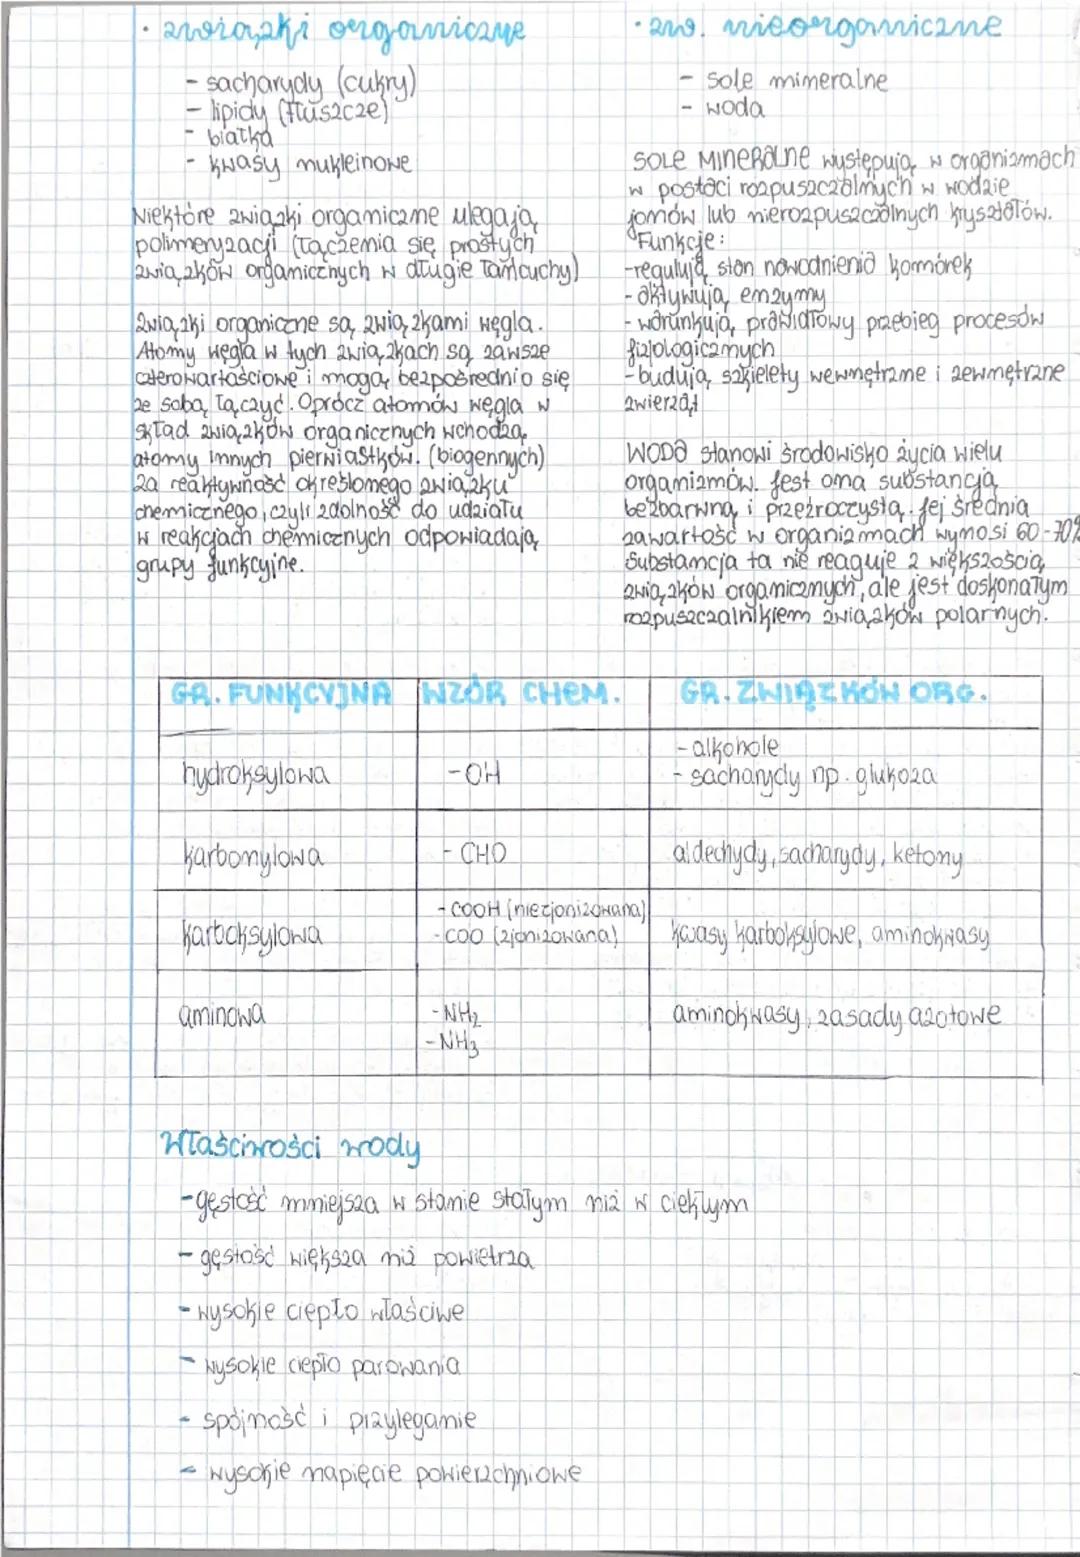 • związki organiczne
- sacharydy (cukry)
- lipidy (tłuszcze)
- białka
- kwasy nukleinowe
Niektóre związki organiczne ulegają
polimeryzacji (łączenia się prostych
związków organicznych w długie łańcuchy)
Związki organiczne są związkami węgla.
Atomy węgla w tych związkach są zawsze
czterowartościowe i mogą bezpośrednio się
ze sobą łączyć. Oprócz atomów węgla w
skład związków organicznych wchodzą
atomy innych pierwiastków. (biogennych)
Za reaktywność określonego związku
chemicznego, czyli zdolność do udziału
w reakcjach chemicznych odpowiadają
grupy funkcyjne.
• zw. nieorganiczne
- sole mineralne
- woda
SOLE MINERALNE występują w organizmach
w postaci rozpuszczalnych w wodzie
jonów lub nierozpuszczalnych kryształów.
Funkcje:
- regulują stan nawodnienia komórek
- aktywują enzymy
- warunkują prawidłowy przebieg procesów
fizjologicznych
- budują szkielety wewnętrzne i zewnętrzne
zwierząt
WODA stanowi środowisko życia wielu
organizmów. Jest ona substancją
bezbarwną i przeźroczystą. Jej średnia
zawartość w organizmach wynosi 60-70%
Substancja ta nie reaguje z większością
związków organicznych, ale jest doskonałym
rozpuszczalnikiem związków polarnych.
GR. FUNKCYJNA WZÓR CHEM. GR. ZWIĄZKÓW ORG.
hydroksylowa -OH - alkohole
- sacharydy np. glukoza
karbonylowa - CHO aldechydy, sacharydy, ketony
karboksylowa - COOH (niezjonizowana)
- COO (zjonizowana) kwasy karboksylowe, aminokwasy
aminowa -NH₂ aminokwasy, zasady azotowe
-NH₃
Właściwości wody
- gęstość mniejsza w stanie stałym niż w ciekłym
- gęstość większa niż powietrza
- wysokie ciepło właściwe
- wysokie ciepło parowania
- spójność i przyleganie
- wysokie napięcie powierzchniowe